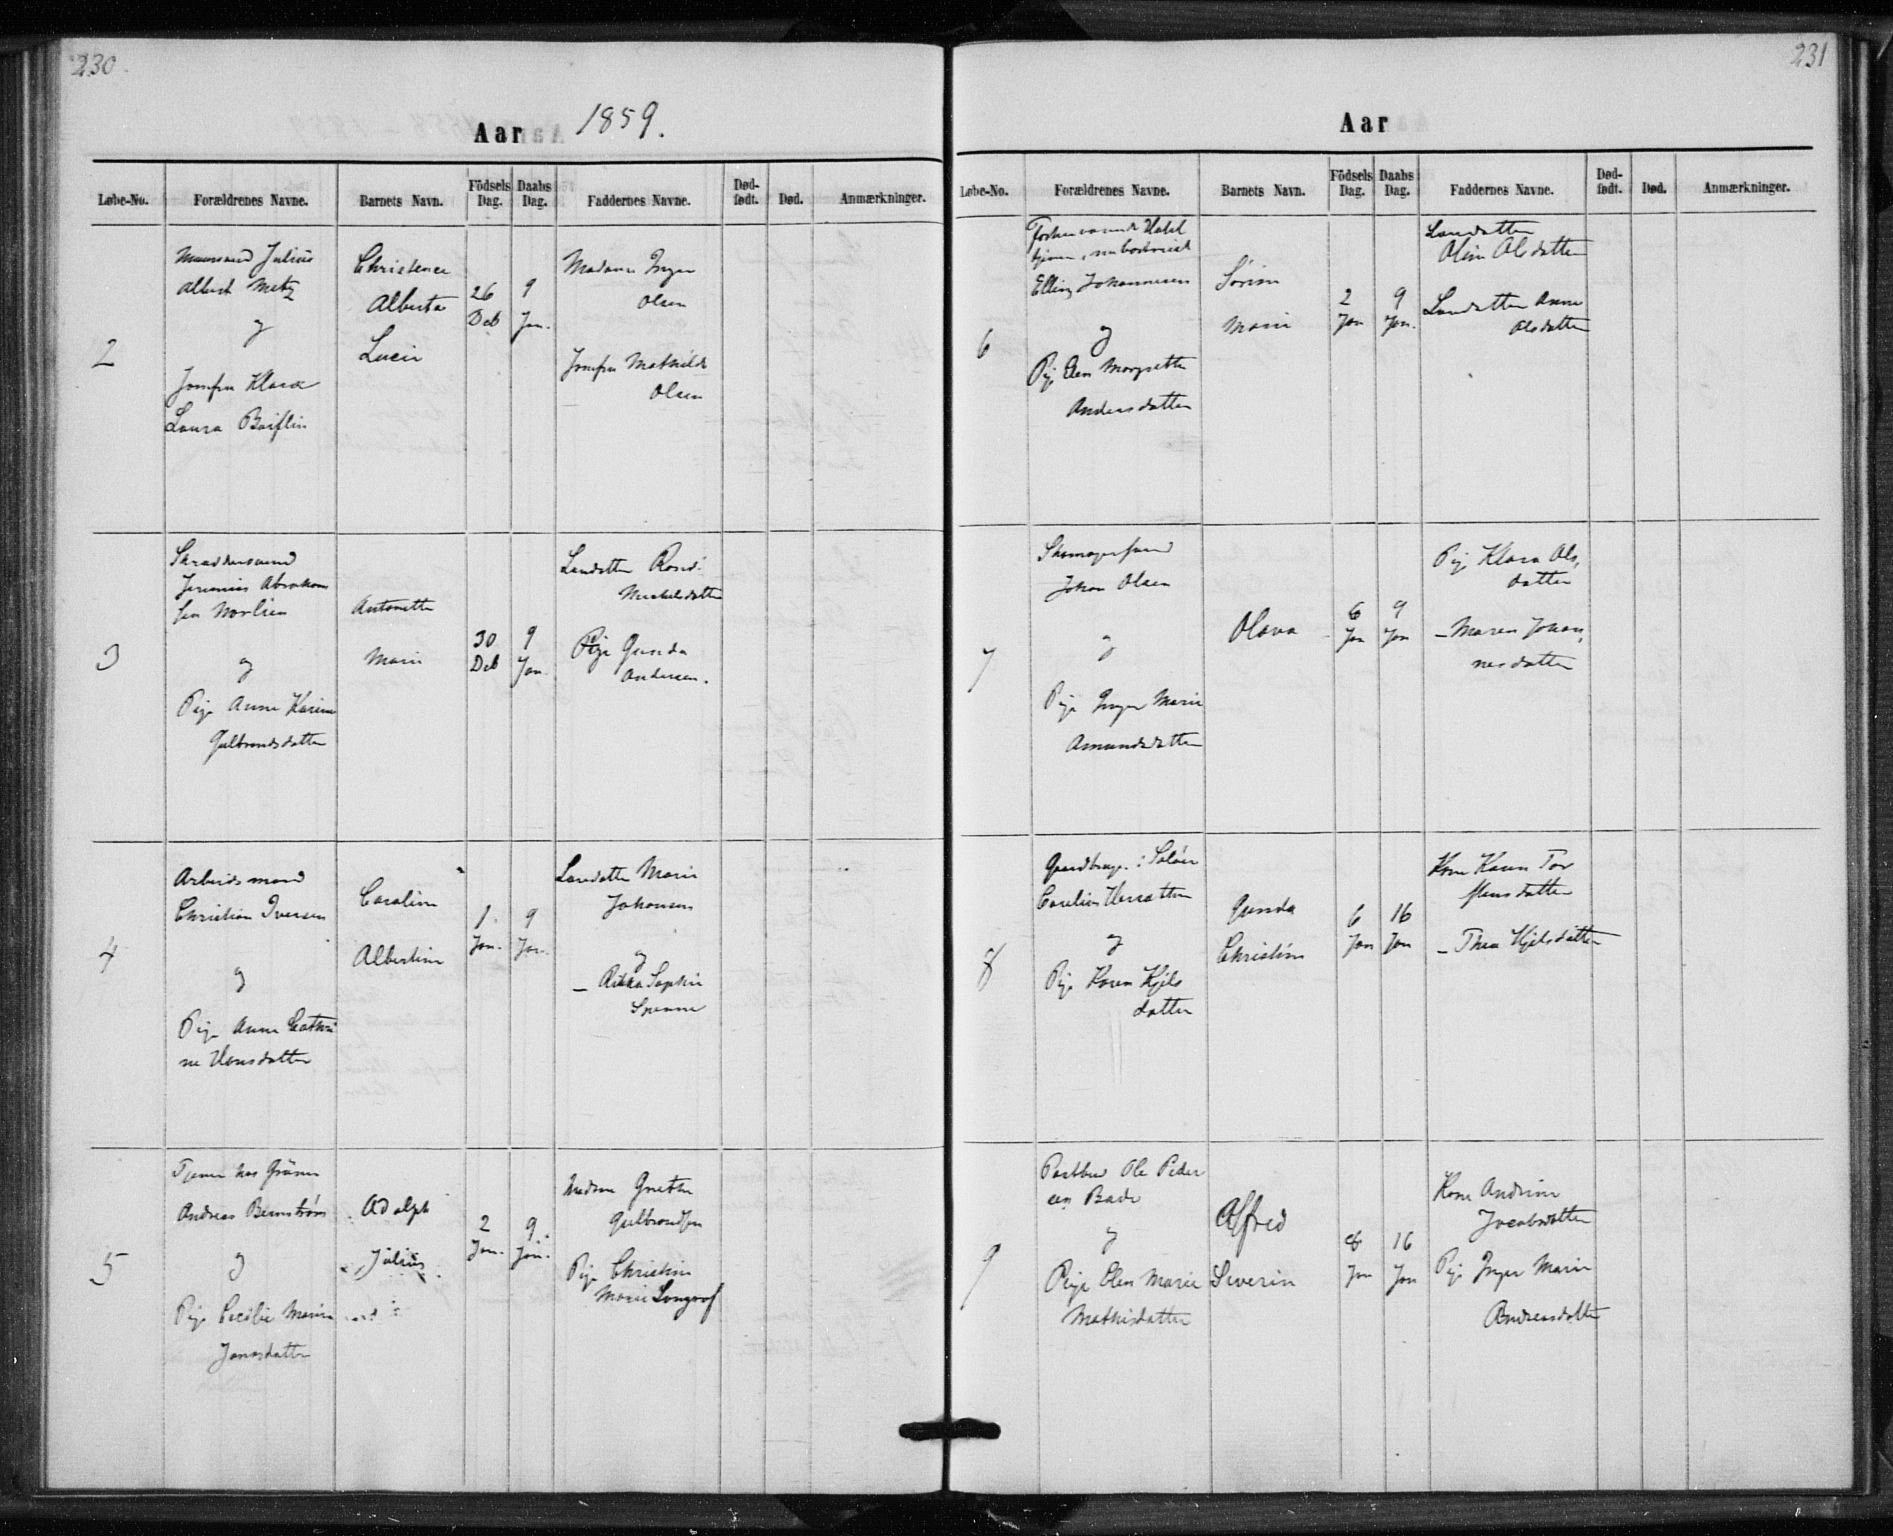 230.
Aar 1859.
Løbe-No. Forældrenes Navne. Barnets Navn. Födsels Dag. Daabs Dag. Faddernes Navne. Død-født. Død. Anmærkninger.
2
Muursvend Julius
Albert Metz
og
Jomfru Klara
Laura
Christence
Alberta
Lucie
26
Deb
9
Jan.
Madame Inger
Olsen
Jomfru Mathilde
Olsen
3
Skraddersvend
Jeremias Abraham
sen Norlien
og
Pige Anne Karine
Gulbrandsdatter
Antonette
Marie
30
Deb
9
Jan.
Landatter
Michelsdatter
Pige Gunda
Andersen.
4
Arbeidsmand
Christian Iversen
og
Pige Anne Cathri
ne Hansdatter
Caroline
Albertine
1.
Jan.
9
Jan.
Marie
Johansen
og
— Sophie
5
Tjener hos
Andreas
og
Pige Cecilie
Jonasdatter
Adolph
Julius
2
Jan.
9.
Jan.
Madme Grethe
Gulbrandsen
Pige Christine
Marie
231
Aar
Løbe-No. Forældrenes Navne. Barnets Navn. Födsels Dag. Daabs Dag. Faddernes Navne. Død-født. Død. Anmærkninger.
6
Elling Johannesen
og
Pige Elen Margrethe
Andersdatter
Sörine
Marie
2
Jan
9
Jan.
Oline Olsdatter
Anne
Olsdatter
7
Skomagersvend
Johan Olsen
og
Pige Inger Marie
Amundsdatter
Olava
6
Jan
9
Jan
Pige Klara Ols,
datter
— Maren Johan,
nesdatter
8
Gaardbrug. i Solöer
og
Pige Karen Kjels
datter
Gunda
Christine
6
Jan
16
Jan
Kone Karen Tor
stensdatter
— Thea Kjelsdatter
9
Postbud Ole Peder
sen
og
Pige Elen Marie
Mathisdatter
Alfred
Severin
8
Jan
16
Jan
Kone Andrine
Jacobsdatter
Pige Inger Marie
Andreasdatter